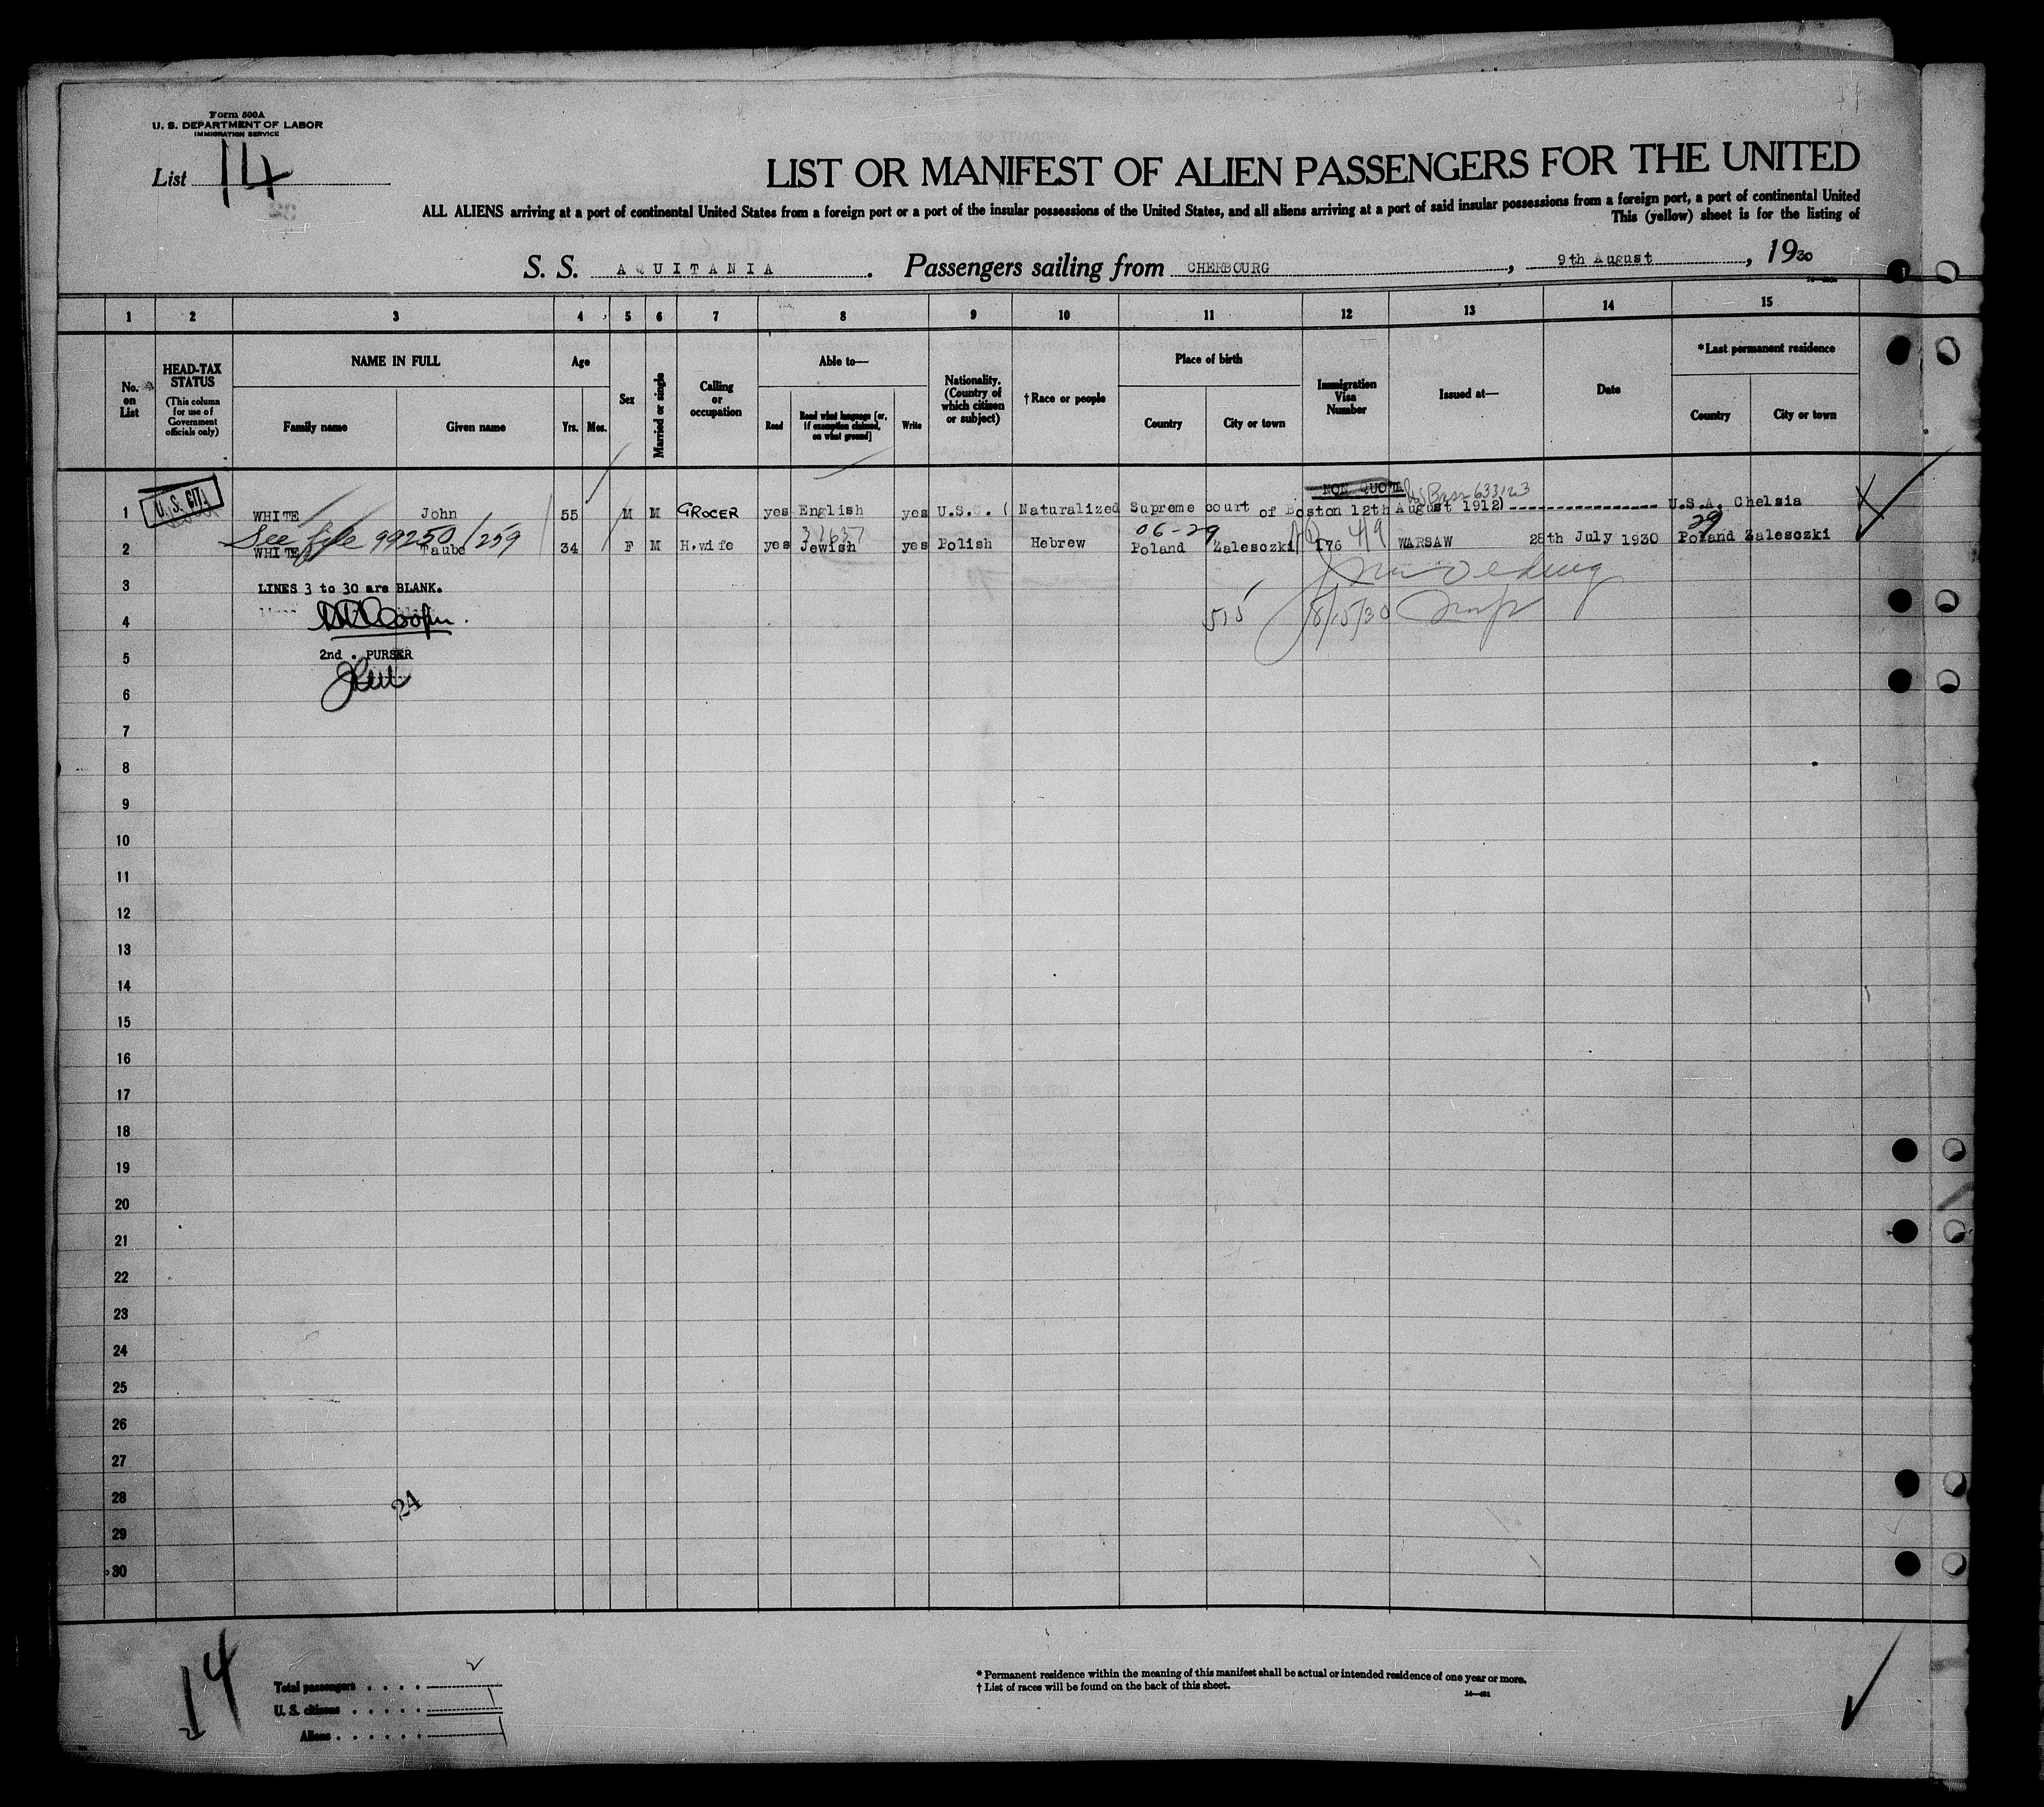 Form 500A
U. S. DEPARTMENT OF LABOR
IMMIGRATION SERVICE
List 14
LIST OR MANIFEST OF ALIEN PASSENGERS FOR THE UNITED
ALL ALIENS arriving at a port of continental United States from a foreign port or a port of the insular possessions of the United States, and all aliens arriving at a port of said insular possessions from a foreign port, a port of continental United
This (yellow) sheet is for the listing of
S. S. AQUITANIA. Passengers sailing from CHERBOURG, 9th August, 1930
1 2 3 4 5 6 7 8 9 10 11 12 13 14 15
No. on List
HEAD-TAX STATUS
(This column for use of Government officials only)
NAME IN FULL
Family name
Given name
Age
Yrs.
Mos.
Sex
Married or single
Calling or occupation
Able to—
Read
Read what language [or, if exemption claimed, on what ground]
Write
Nationality. (Country of which citizen or subject)
†Race or people
Place of birth
Country
City or town
Immigration Visa Number
Issued at—
Date
*Last permanent residence
Country
City or town
U.S. CIT.
NON QUOTA
633123
1 WHITE John 55 M M GROCER yes English yes U.S. ( Naturalized Supreme court of Boston 12th August 1912) U.S.A. Chelsia
See file 99250/259
31637
06-29
29
2 WHITE Taube 34 F M H.wife yes Jewish yes Polish Hebrew Poland Zalesczki 176 WARSAW 28th July 1930 Poland Zalesczki
3 LINES 3 to 30 are BLANK.
4
515 8/15/30
5 2nd . PURSER
6
7
8
9
10
11
12
13
14
15
16
17
18
19
20
21
22
23
24
25
26
27
28
24
29
30
14
Total passengers . . . . 2
U. S. citizens . . . . . 1
Aliens . . . . . . 1
* Permanent residence within the meaning of this manifest shall be actual or intended residence of one year or more.
† List of races will be found on the back of this sheet.